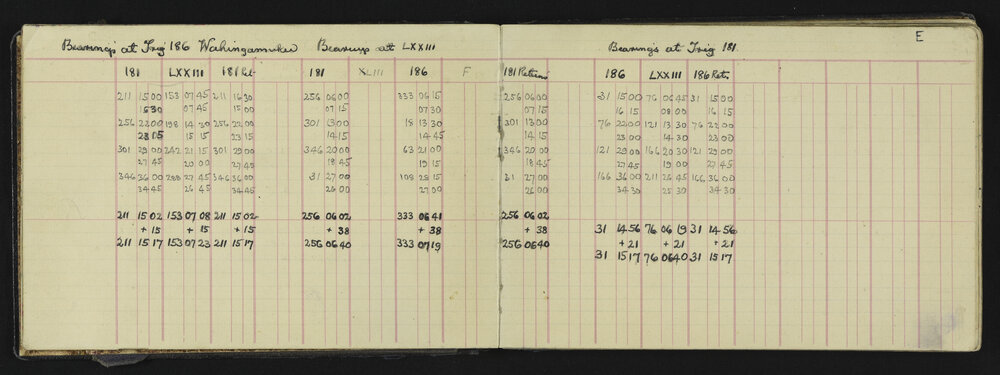 E
Bearings at Trig 186 Wahingamuku Bearings at LXXIII Bearings at Trig 181.
181 LXXIII 181 Ret. 181 XLIII 186 F 181 Returns 186 LXXIII 186 Ret.
211 15 00 153 07 45 211 16 30 256 06 00 333 06 15 256 06 00 31 15 00 76 06 45 31 15 00
16 30 07 45 15 00 07 15 07 30 07 15 16 15 08 00 16 15
256 22 00 198 14 30 256 22 00 301 13 00 18 13 30 301 13 00 76 22 00 121 13 30 76 22 00
23 05 15 15 23 15 14 15 14 45 14 15 23 00 14 30 23 00
301 29 00 242 21 15 301 29 00 346 20 00 63 21 00 346 20 00 121 29 00 166 20 30 121 29 00
27 45 20 00 27 45 18 45 19 15 18 45 27 45 19 00 27 45
346 36 00 288 27 45 346 36 00 31 27 00 108 28 15 31 27 00 166 36 00 211 26 45 166 36 00
34 45 26 45 34 45 26 00 27 00 26 00 34 30 25 30 34 30
211 15 02 153 07 08 211 15 02 256 06 02 333 06 41 256 06 02
+ 15 + 15 + 15 + 38 + 38 + 38 31 14 56 76 06 19 31 14 56
211 15 17 153 07 23 211 15 17 256 06 40 333 07 19 256 06 40 + 21 + 21 + 21
31 15 17 76 06 40 31 15 17